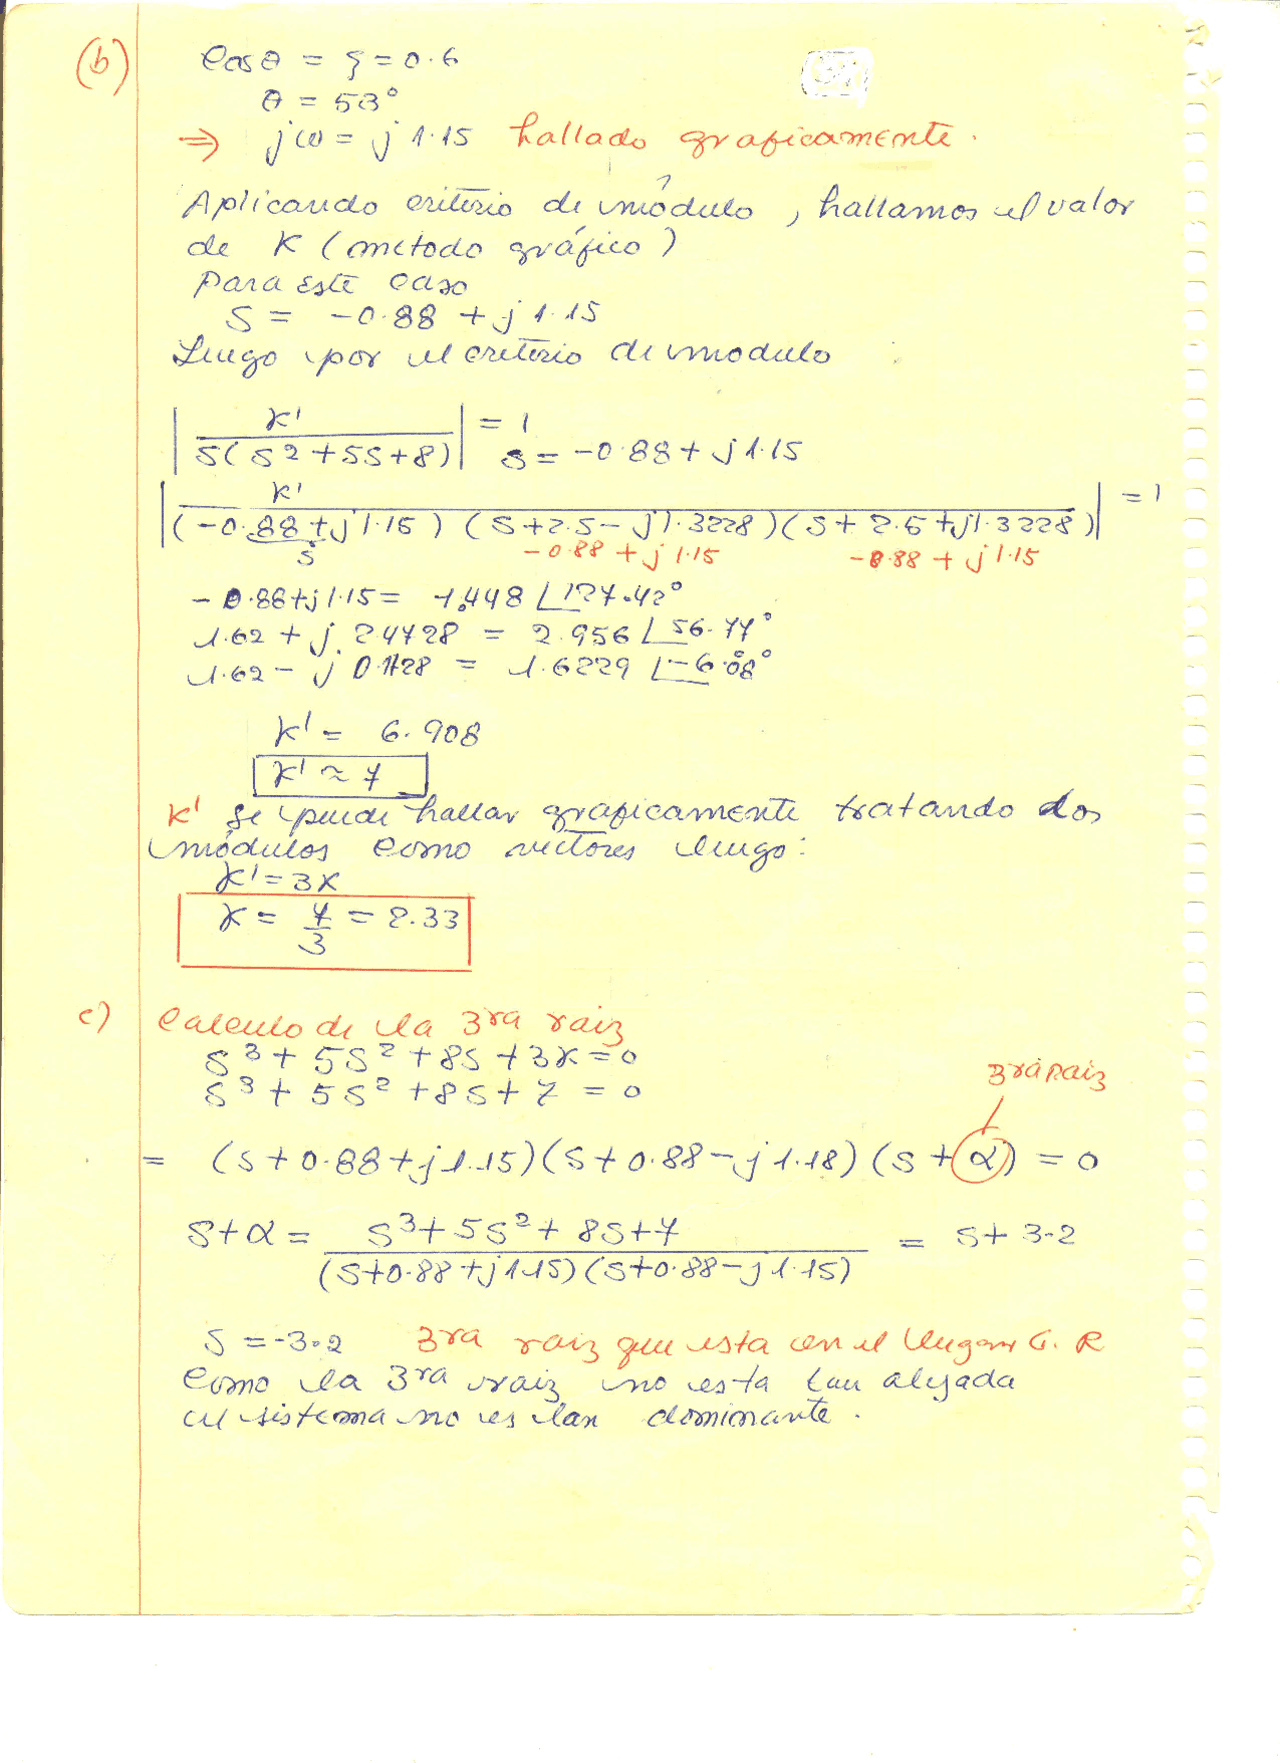 (b) Cos θ = ξ = 0.6
θ = 53°
⇒ jω = j 1.15 hallado graficamente.
Aplicando criterio de módulo, hallamos el valor
de K (método gráfico)
Para este caso
S = -0.88 + j 1.15
Luego por el criterio de modulo
| K' / S(S² + 5S + 8) | = 1
S = -0.88 + j 1.15
| K' / (-0.88 + j 1.15) (S + 2.5 - j 1.3228) (S + 2.5 + j 1.3228) | = 1
S -0.88 + j 1.15 -0.88 + j 1.15
-0.88 + j 1.15 = 1.448 ∠127.42°
1.62 + j 2.4728 = 2.956 ∠56.77°
1.62 - j 0.1728 = 1.6229 ∠-6.08°
K' = 6.908
K' ≈ 7
K' se puede hallar graficamente tratando los
módulos como vectores luego:
K' = 3K
K = 7/3 = 2.33
c) Calculo de la 3ra raiz
S³ + 5S² + 8S + 3K = 0
S³ + 5S² + 8S + 7 = 0
3ra raiz
= (S + 0.88 + j 1.15) (S + 0.88 - j 1.18) (S + α) = 0
S + α = S³ + 5S² + 8S + 7 / (S + 0.88 + j 1.15) (S + 0.88 - j 1.15) = S + 3.2
S = -3.2 3ra raiz que esta en el lugar G. R
Como la 3ra raiz no esta tan alejada
el sistema no es tan dominante.